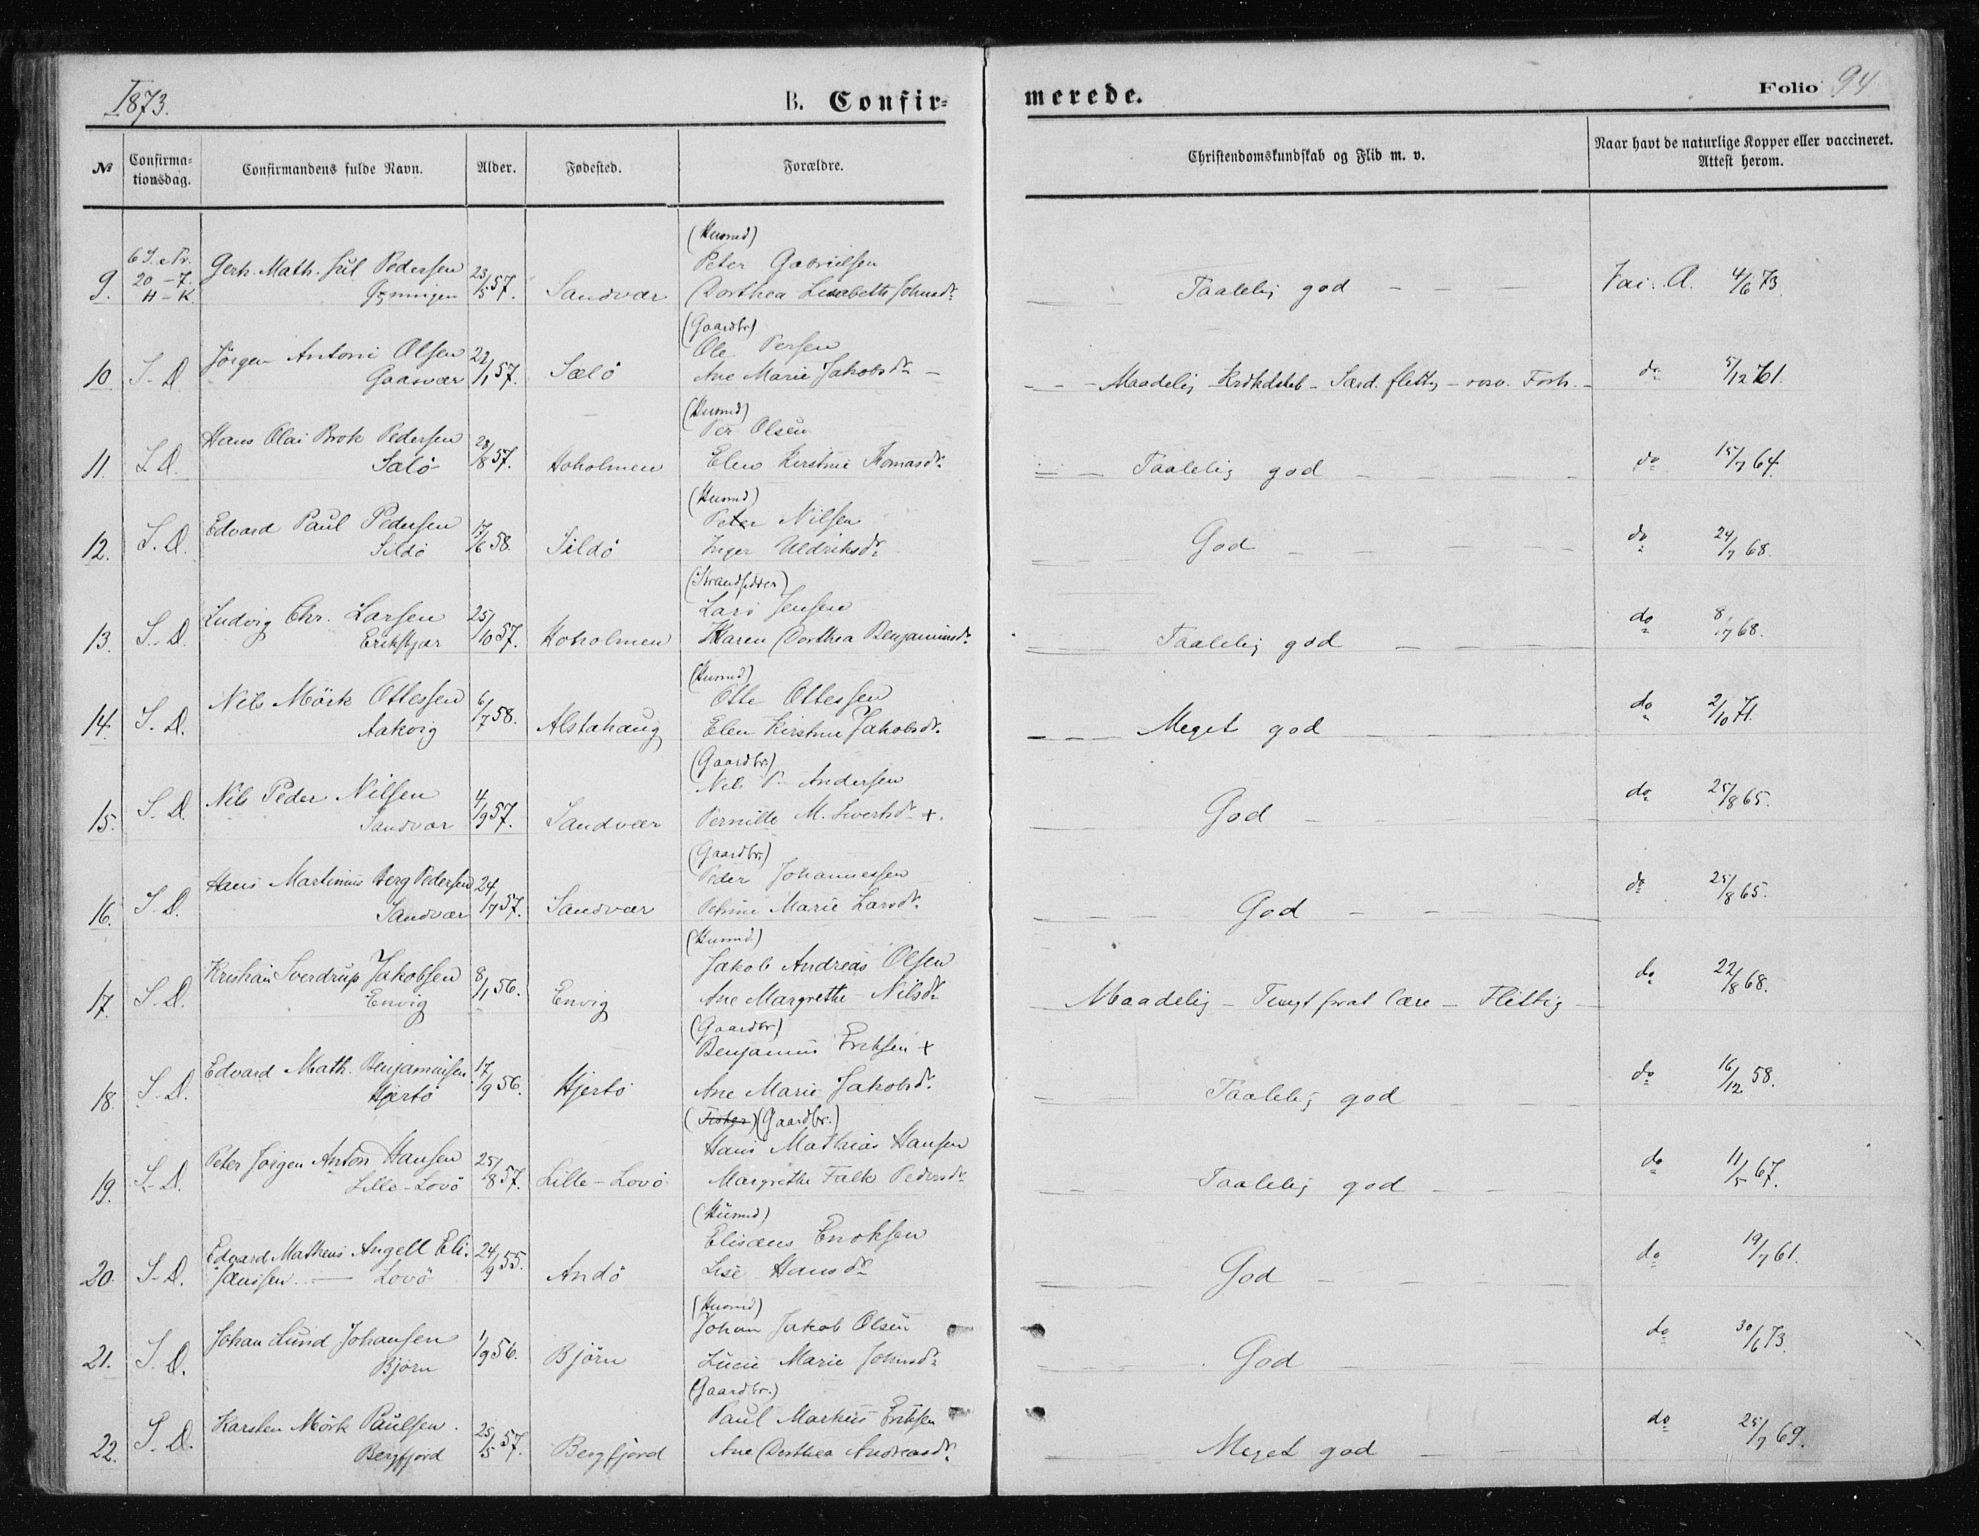 1873.
B. Confir-
merede.
Folio 94
№
Confirma-
tionsdag.
Confirmandens fulde Navn.
Alder.
Fødested.
Forældre.
Christendomskundskab og Flid m. v.
Naar havt de naturlige Kopper eller vaccineret.
Attest herom.
(Husmd)
9. 6 S. e Tr. 20-7. H-K. Gerh. Math. Jul Pedersen 23/5 57. Sandvær Peter Gabrielsen
Dorthea Lisabeth Johnsdr. Taalelig god Vac. A. 4/6 73.
(Gaardbr)
10. S. D. Jørgen Antoni Olsen 22/1 57. Sælö Ole Persen
Gaasvær Ane Marie Jakobsdr. Maadelig Krdkdskb - Særd. flittig - Forh. do 5/12 61.
(Husmd)
11. S. D. Hans Olai Brok Pedersen 28/8 57. Hoholmen Per Olsen
Salö Elen Kirstine Thomasdr. Taalelig god do 15/7 64.
(Husmd)
12. S. D. Edvard Paul Pedersen 17/6 58. Sildö Peter Nilsen
Sildö Inger Uldriksdr. God do 24/7 68.
(Strandsidder)
13. S. D. Ludvig Chr. Larsen 25/10 57. Hoholmen Lars Jensen
Erikskjær Karen Dorthea Benjaminsdr. Taalelig god do 8/7 68.
(Husmd)
14. S. D. Nils Mörk Ottessen 6/7 58. Alstahaug Otte Ottessen
Aakvig Elen Kirstine Jakobsdr. Meget god do 2/10 71.
(Gaardbr.)
15. S. D. Nils Peder Nilsen 4/9 57. Sandvær Nils P. Andersen
Sandvær Pernille M. Sivertsdr. +. God do 25/8 65.
(Gaardbr.)
16. S. D. Hans Martinus Berg Pedersen 24/7 57. Sandvær Peder Johannessen
Sandvær Petrine Marie Larsdr. God do 25/8 65.
(Husmd)
17. S. D. Kristian Sverdrup Jakobsen 8/1 56. Envig Jakob Andreas Olsen
Envig Ane Margrethe Nilsdr. Maadelig - Tungt for at lære - Flittig do 22/8 68.
(Gaardbr)
18. S. D. Edvard Math. Benjaminsen 17/9 56. Hjertö Benjamin Eriksen +
Hjertö Ane Marie Jakobsdr. Taalelig god do 16/12 58.
(Fisker) (Gaardbr.)
19. S. D. Peter Jörgen Anton Hansen 25/8 57. Lille-Lovö Hans Mathias Hansen
Lille-Lovö Margrethe Falk Pedersdr. Taalelig god do 11/5 67.
(Husmd)
20. S. D. Edvard Matheus Angell Eli- 24/9 55. Andö Elisæus Enoksen
sæussen. Lovö Lise Hansdr. God do 19/7 61.
(Husmd)
21. S. D. Johan Lund Johansen 1/9 56. Björn Johan Jakob Olsen
Björn Lucie Marie Johnsdr. God do 30/6 73.
(Gaardbr.)
22. S. D. Karsten Mörk Paulsen. 25/5 57. Bergfjord Paul Markus Eriksen
Bergfjord Ane Dorthea Andreasdr. Meget god do 25/7 69.